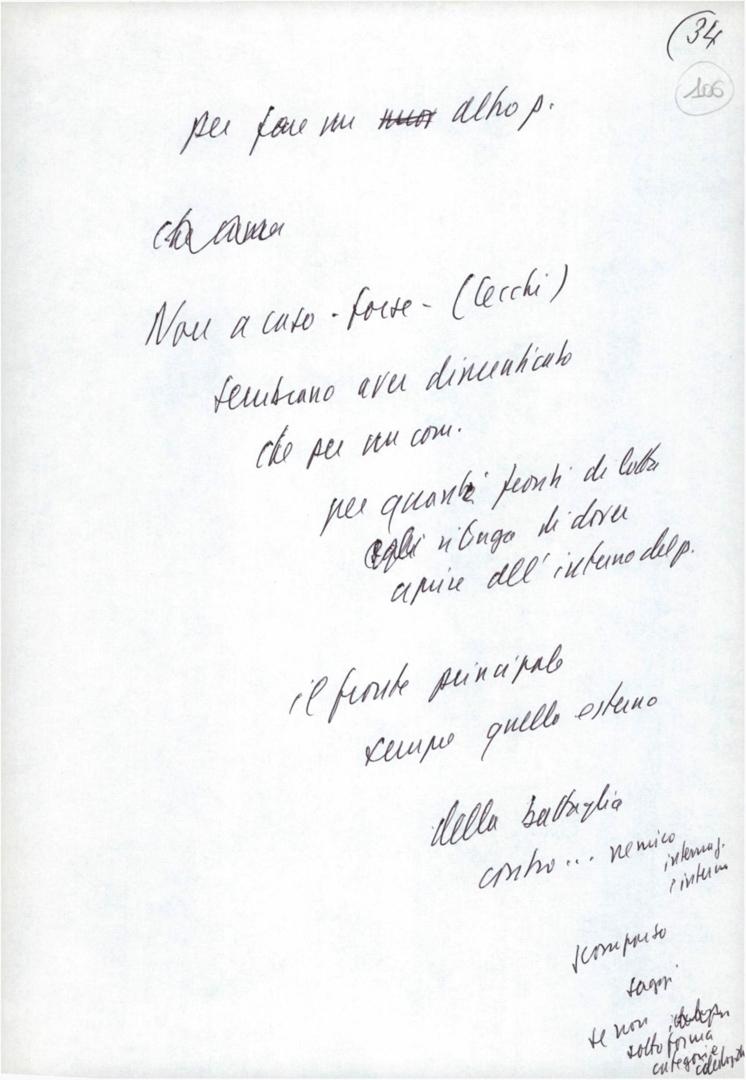 (34
106
per fare un altro p.
Non a caso - forse - (Cecchi)
sembrano aver dimenticato
che per un com.
per quanti fronti di lotta
egli ritenga di dover
aprire all'interno del p.
il fronte principale
sempre quello esterno
della battaglia
contro... nemico
internaz.
interno
scomparso
se non
sotto forma
categorie